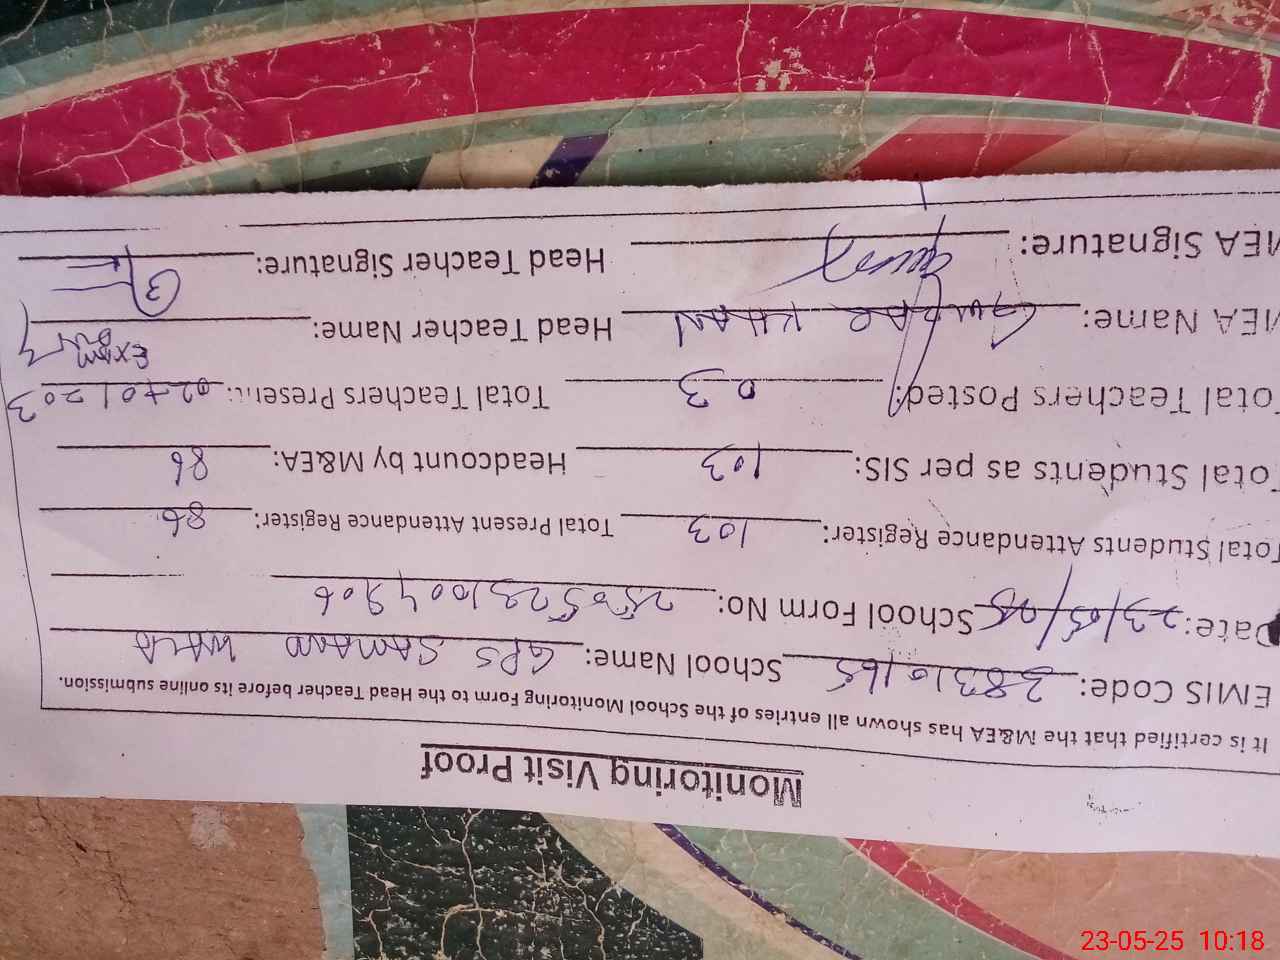 Monitoring Visit Proof
It is certified that the M&EA has shown all entries of the School Monitoring Form to the Head Teacher before its online submission.
EMIS Code: 38310165 School Name: GPS SAMAND WALA
Date: 23/05/25 School Form No: 2505231004906
Total Students Attendance Register: 103 Total Present Attendance Register: 86
Total Students as per SIS: 103 Headcount by M&EA: 86
Total Teachers Posted: 03 Total Teachers Present: 02+01=03
MEA Name: KHAN Head Teacher Name: Exam Duty
MEA Signature: Head Teacher Signature:
23-05-25 10:18